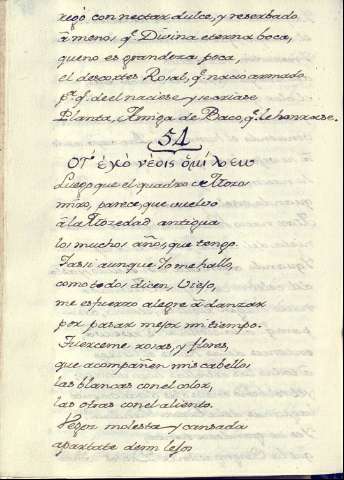 regó con nectar dulce, y reserbado
â menos q.̃ Divina eterna boca,
que no es grandeza poca,
el descortes Rosal, q.̃ nacio armado
p.ª q.̃ de el naciese y se criase
Planta, Amiga de Baco, q.̃ le honrase.
54
Οτ' ἐγὼ νέοις ὁμιλεω
Luego que el quadro de Mozos
miro, parece, que vuelvo
â la Mozedad antigua
los muchos años, que tengo.
Y assi aunque Yo me hallo,
como todos dicen, Viejo,
me esfuerzo alegre â danzar
por pasar mejor mi tiempo.
Tuerceme rosas, y flores,
que acompañen mis cabellos
las blancas con el color,
las otras con el aliento.
Vejez molesta y cansada
apartate de mi lejos